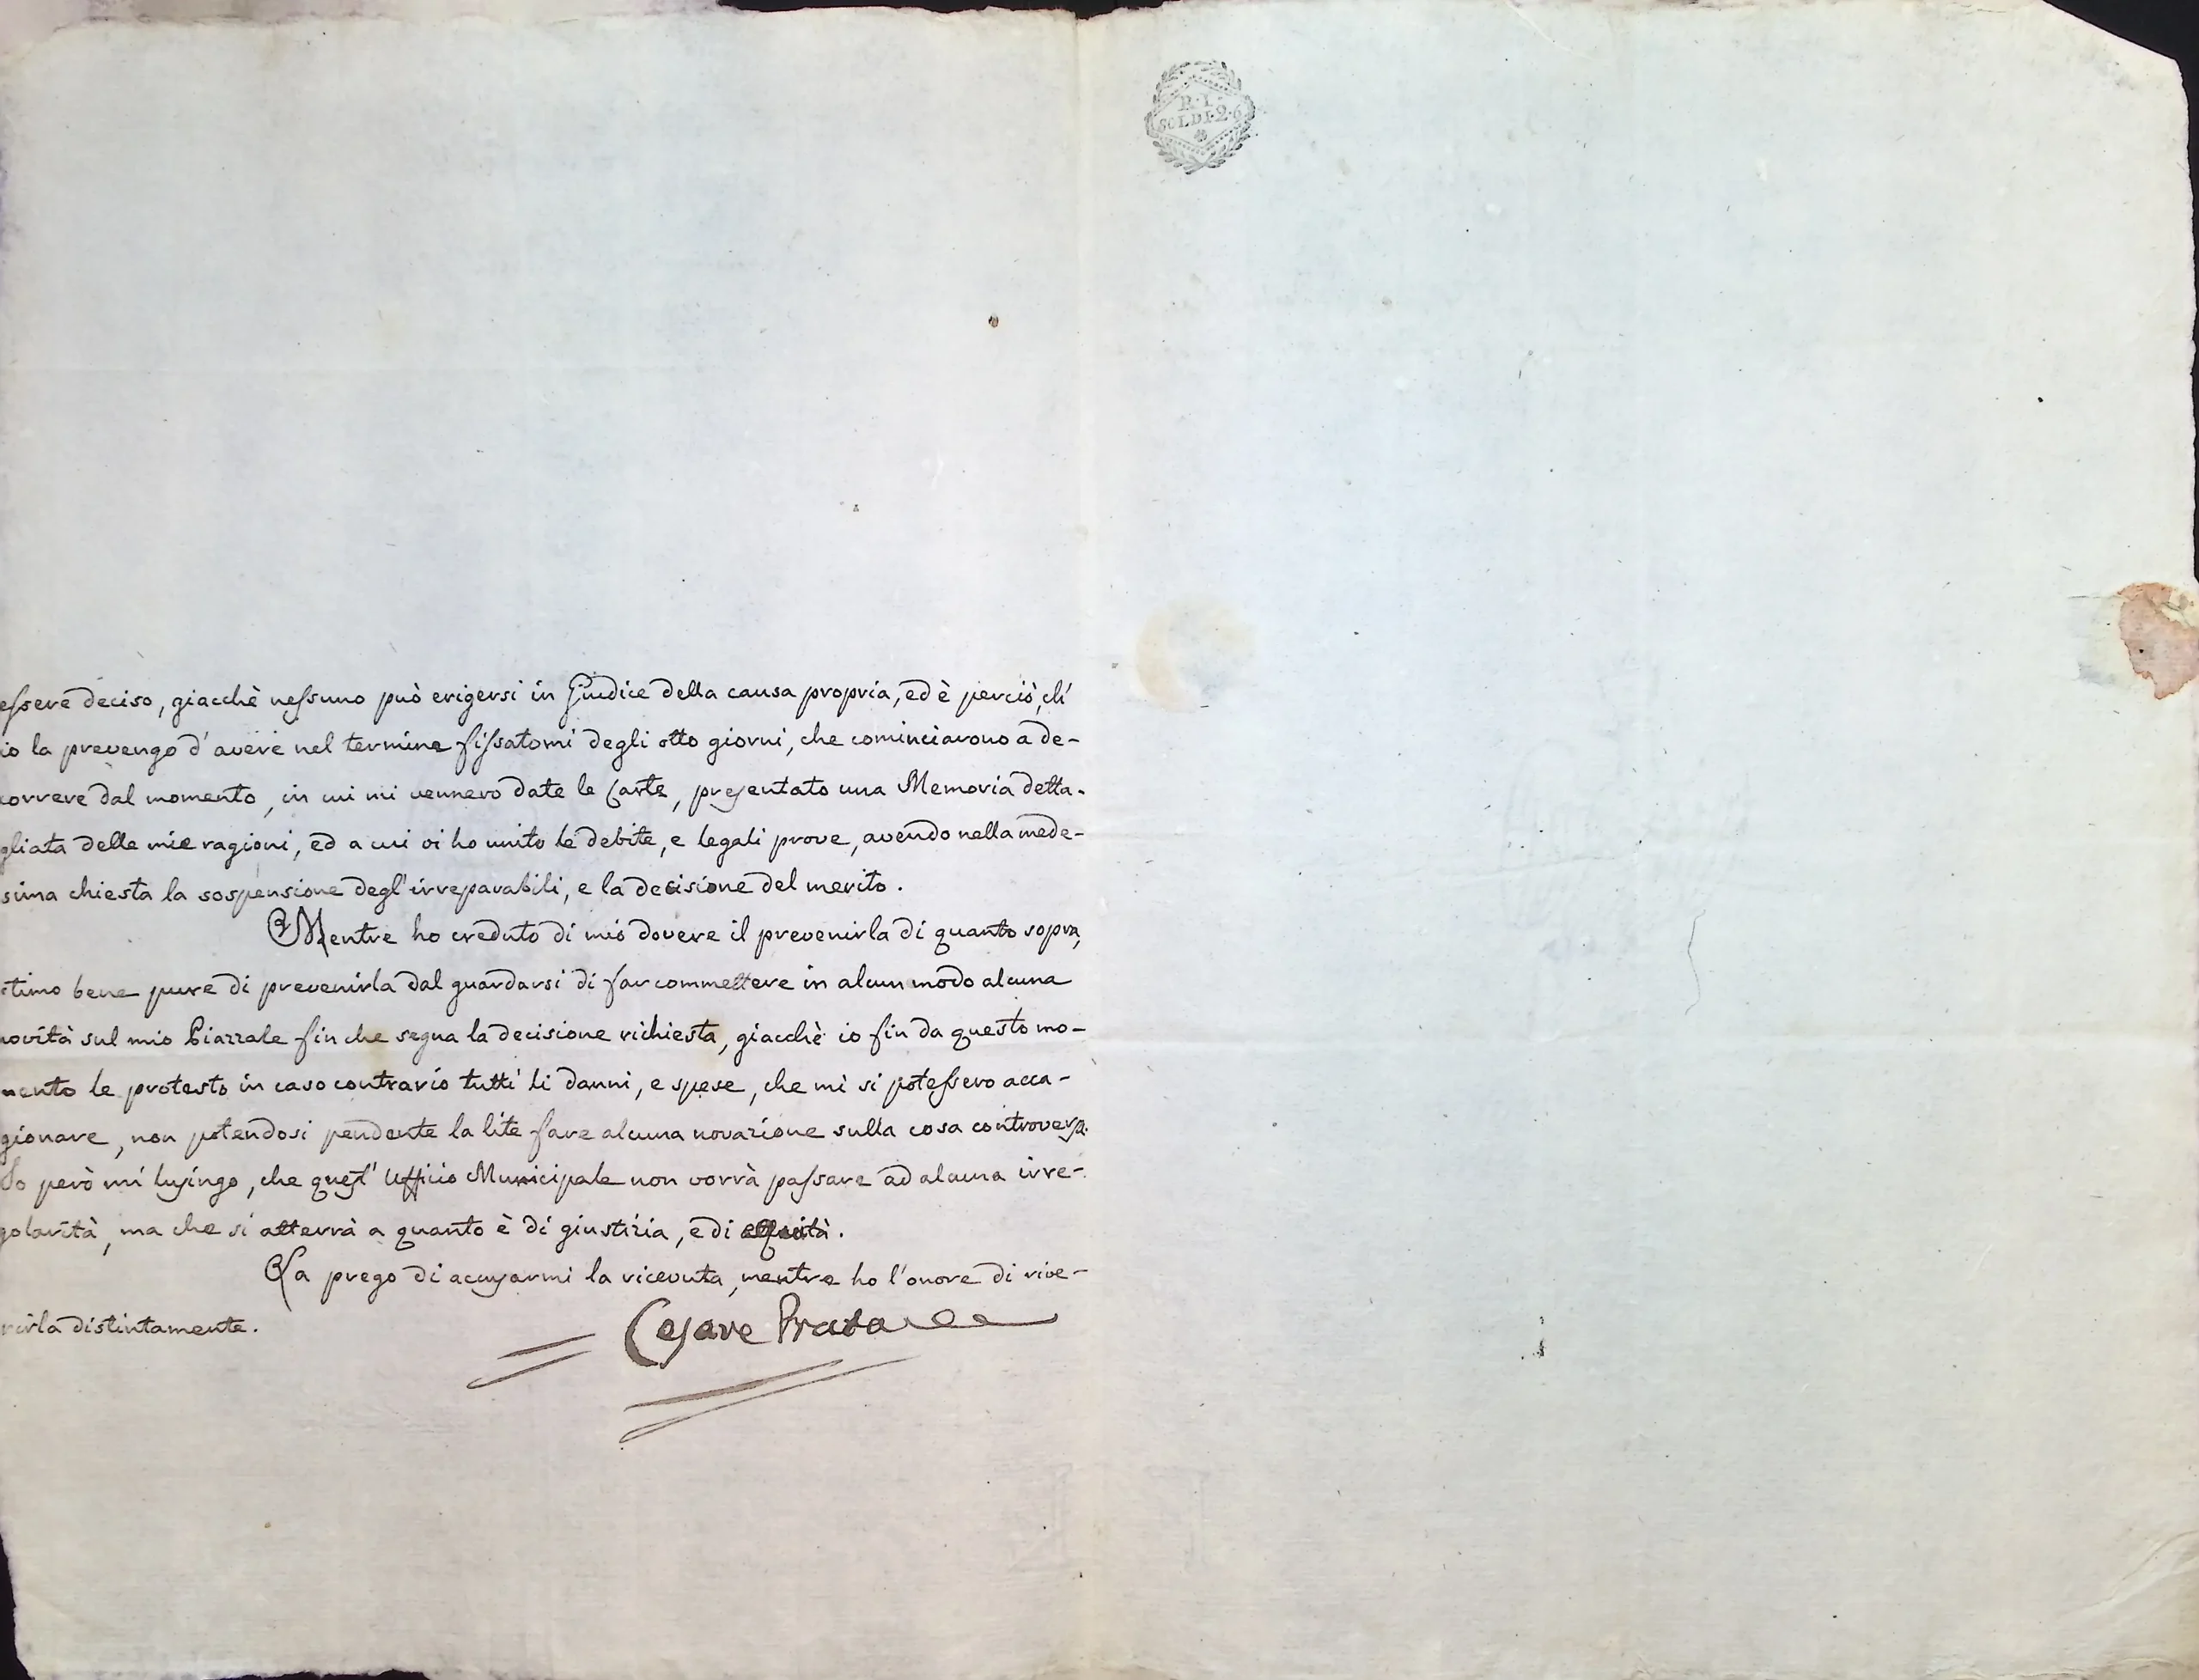 essere deciso, giacchè nessuno può erigersi in Giudice della causa propria, ed è perciò, ch'
io la prevengo d'avere nel termine fissatomi degli otto giorni, che cominciarono a de-
correre dal momento, in cui mi vennero date le Carte, presentato una Memoria detta-
gliata delle mie ragioni, ed a cui vi ho unito le debite, e legali prove, avendo nella mede-
sima chiesta la sospensione degl'irreparabili, e la decisione del merito.
Mentre ho creduto di mio dovere il prevenirla di quanto sopra,
stimo bene pure di prevenirla dal guardarsi di far commettere in alcun modo alcuna
novità sul mio Piazzale fin che segua la decisione richiesta, giacchè io fin da questo mo-
mento le protesto in caso contrario tutti li danni, e spese, che mi si potessero acca-
gionare, non potendosi pendente la lite fare alcuna novazione sulla cosa controversa.
Io però mi lusingo, che quest' Ufficio Municipale non vorrà passare ad alcuna irre-
golarità, ma che si atterrà a quanto è di giustizia, e di equità.
La prego di accusarmi la ricevuta, mentre ho l'onore di rive-
rirla distintamente.
Cesare Prata
R. I.
SOLDI 2.6